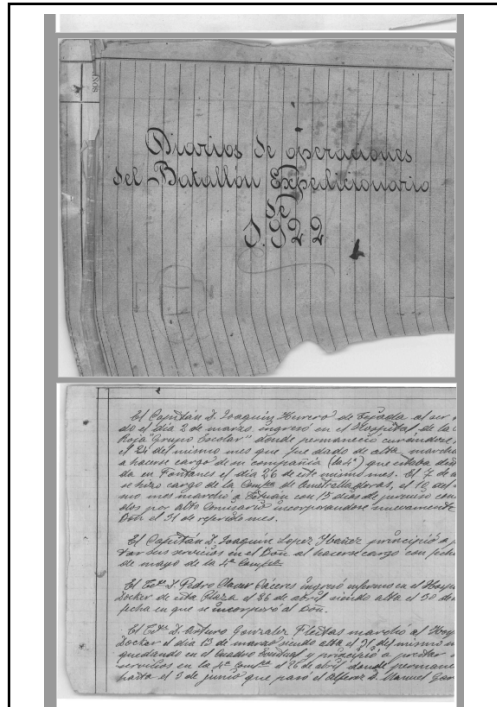 Diarios de operaciones
del Batallón Expedicionario
de
1.922
El Capitán D. Joaquín Herrero de Tejada al ser
do el dia 2 de marzo, ingresó en el Hospital de la
Roja "Grupo Escolar" donde permaneció curándose,
el 24 del mismo mes que fue dado de alta, marcha
a hacerse cargo de su compañía (la 4ª) que estaba
da en el dia 26 de este mismo mes. El 7
se hizo cargo de la Compª de Ametralladoras, el 16 del
mo mes marchó a Tetuán con 15 dias de permiso con
dos por alto Comisario incorporandose nuevamente
Bon el 31 de referido mes.
El Capitán D. Joaquín Lopez Ybañez principió a p
tar sus servicios en el Bon al hacerse cargo con fecha
de mayo de la 4ª Compª
El D. Pedro Cáceres ingresó enfermo en el Hosp
Docker de esta Plaza el 26 de abril siendo alta el 30 de
fecha en que se incorporó al Bon.
El D. Arturo Gonzalez Fleitas marchó al Hosp
Docker el dia 13 de marzo siendo alta el 31 del mismo
quedando en el Cuadro Eventual y principió a prestar
servicios en la 4ª Compª el 26 de abril, donde permane
hasta el 5 de junio que pasó el alferez D. Manuel